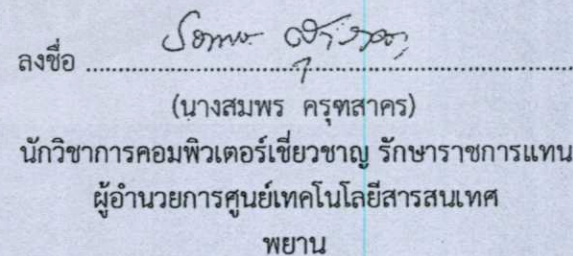 ลงชื่อ ........................................................
(นางสมพร ครุฑสาคร)
นักวิชาการคอมพิวเตอร์เชี่ยวชาญ รักษาราชการแทน
ผู้อำนวยการศูนย์เทคโนโลยีสารสนเทศ
พยาน